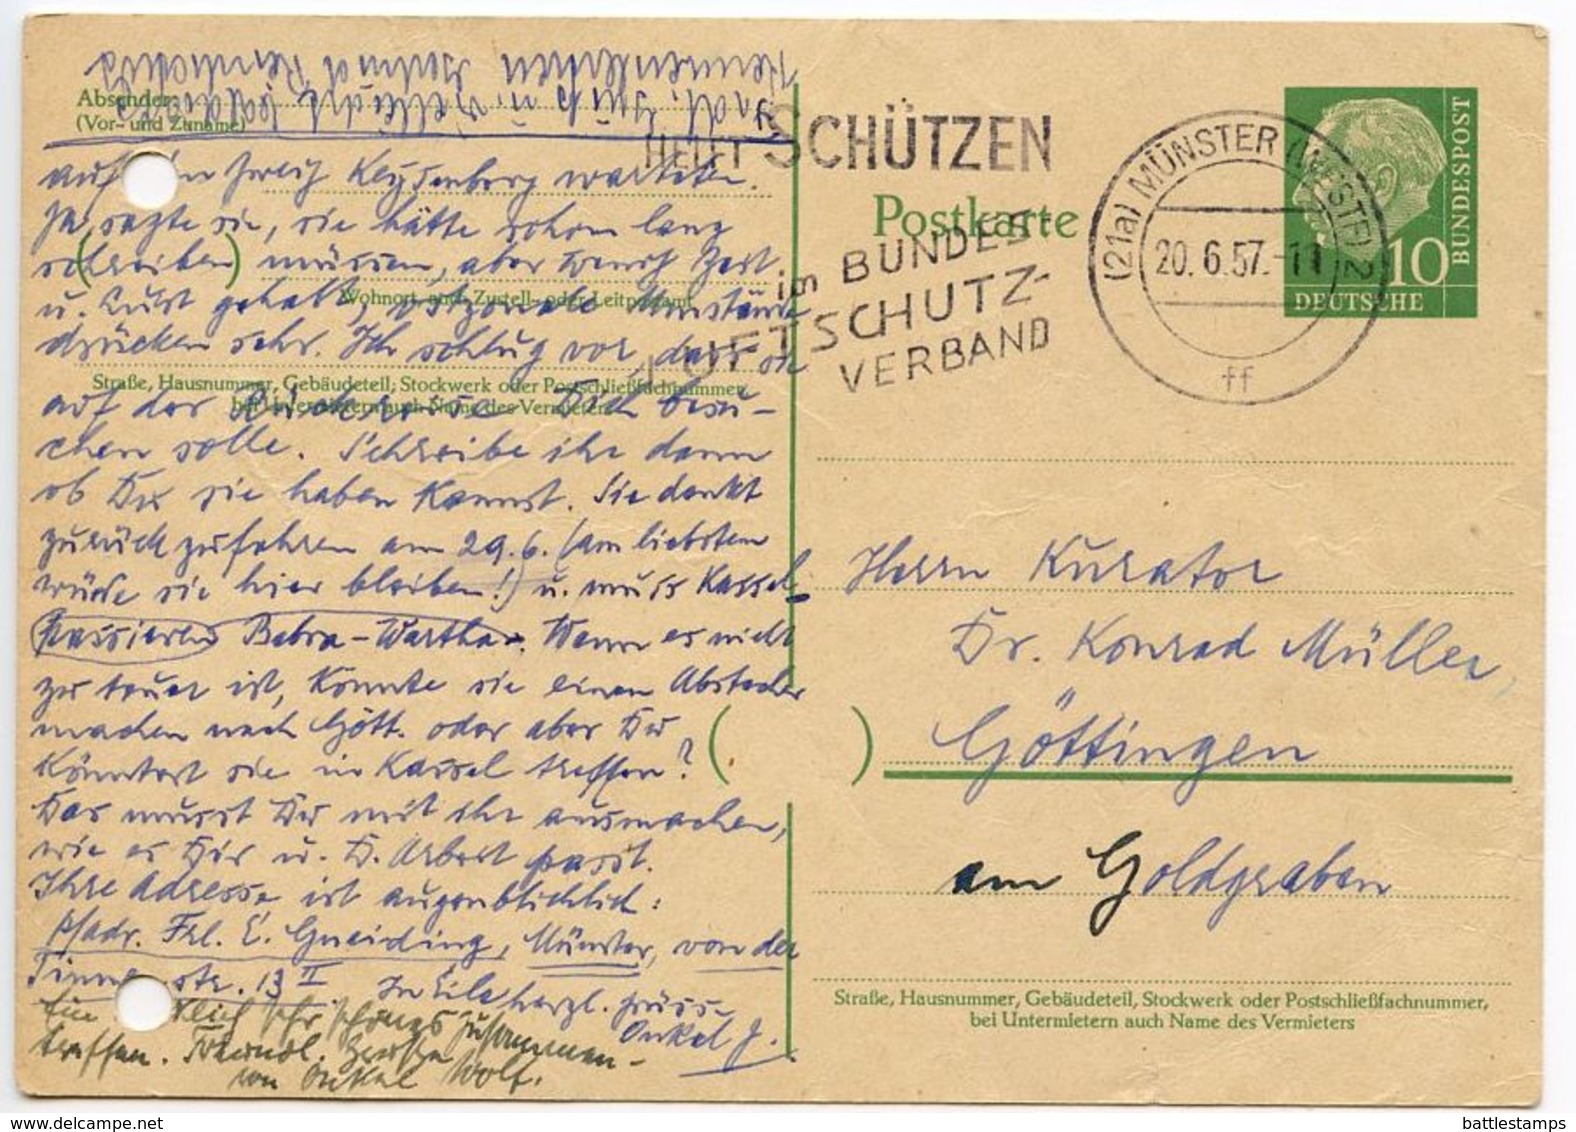 Absender:
(Vor- und Zuname)
auf den Zweig Keysenberg warteten.
Ja, sagte sie, sie hätte schon lang
schreiben müssen, aber wenig Zeit
u. Lust gehabt,
Wohnort, auch Zustell- oder Leitpostamt
drücken sehr. Ich schlug vor, dass sie
Straße, Hausnummer, Gebäudeteil, Stockwerk oder Postschließfachnummer,
bei Untermietern auch Name des Vermieters
auf der Rückreise Dich besu-
chen solle. Schreibe ihr dann
ob Du sie haben kannst. Sie denkt
zurückzufahren am 29.6. (am liebsten
würde sie hier bleiben!) u. muss Kassel
passieren Bebra-Wartha. Wenn es nicht
zu teuer ist, könnte sie einen Abstecher
machen nach Gött. oder aber Du
könntest sie in Kassel treffen?
Das musst Du mit ihr ausmachen,
wie es Dir u. D. Arbeit passt.
Ihre Adresse ist augenblicklich:
p/adr. Frl. E. Gneiding, Münster, von der
Tinnenstr. 13 II In Eile herzl. Grüsse
Onkel J.
sehr schönes Zusammen-
treffen. Freundl. Grüsse
von Onkel Wolf.
HELFT SCHÜTZEN
im BUNDES-
LUFTSCHUTZ-
VERBAND
Postkarte
(21a) MÜNSTER (WESTF) 2
20.6.57.-11
ff
10
DEUTSCHE
BUNDESPOST
Herrn Kurator
Dr. Konrad Müller,
Göttingen
am Goldgraben
Straße, Hausnummer, Gebäudeteil, Stockwerk oder Postschließfachnummer,
bei Untermietern auch Name des Vermieters
delcampe.net
battlestamps